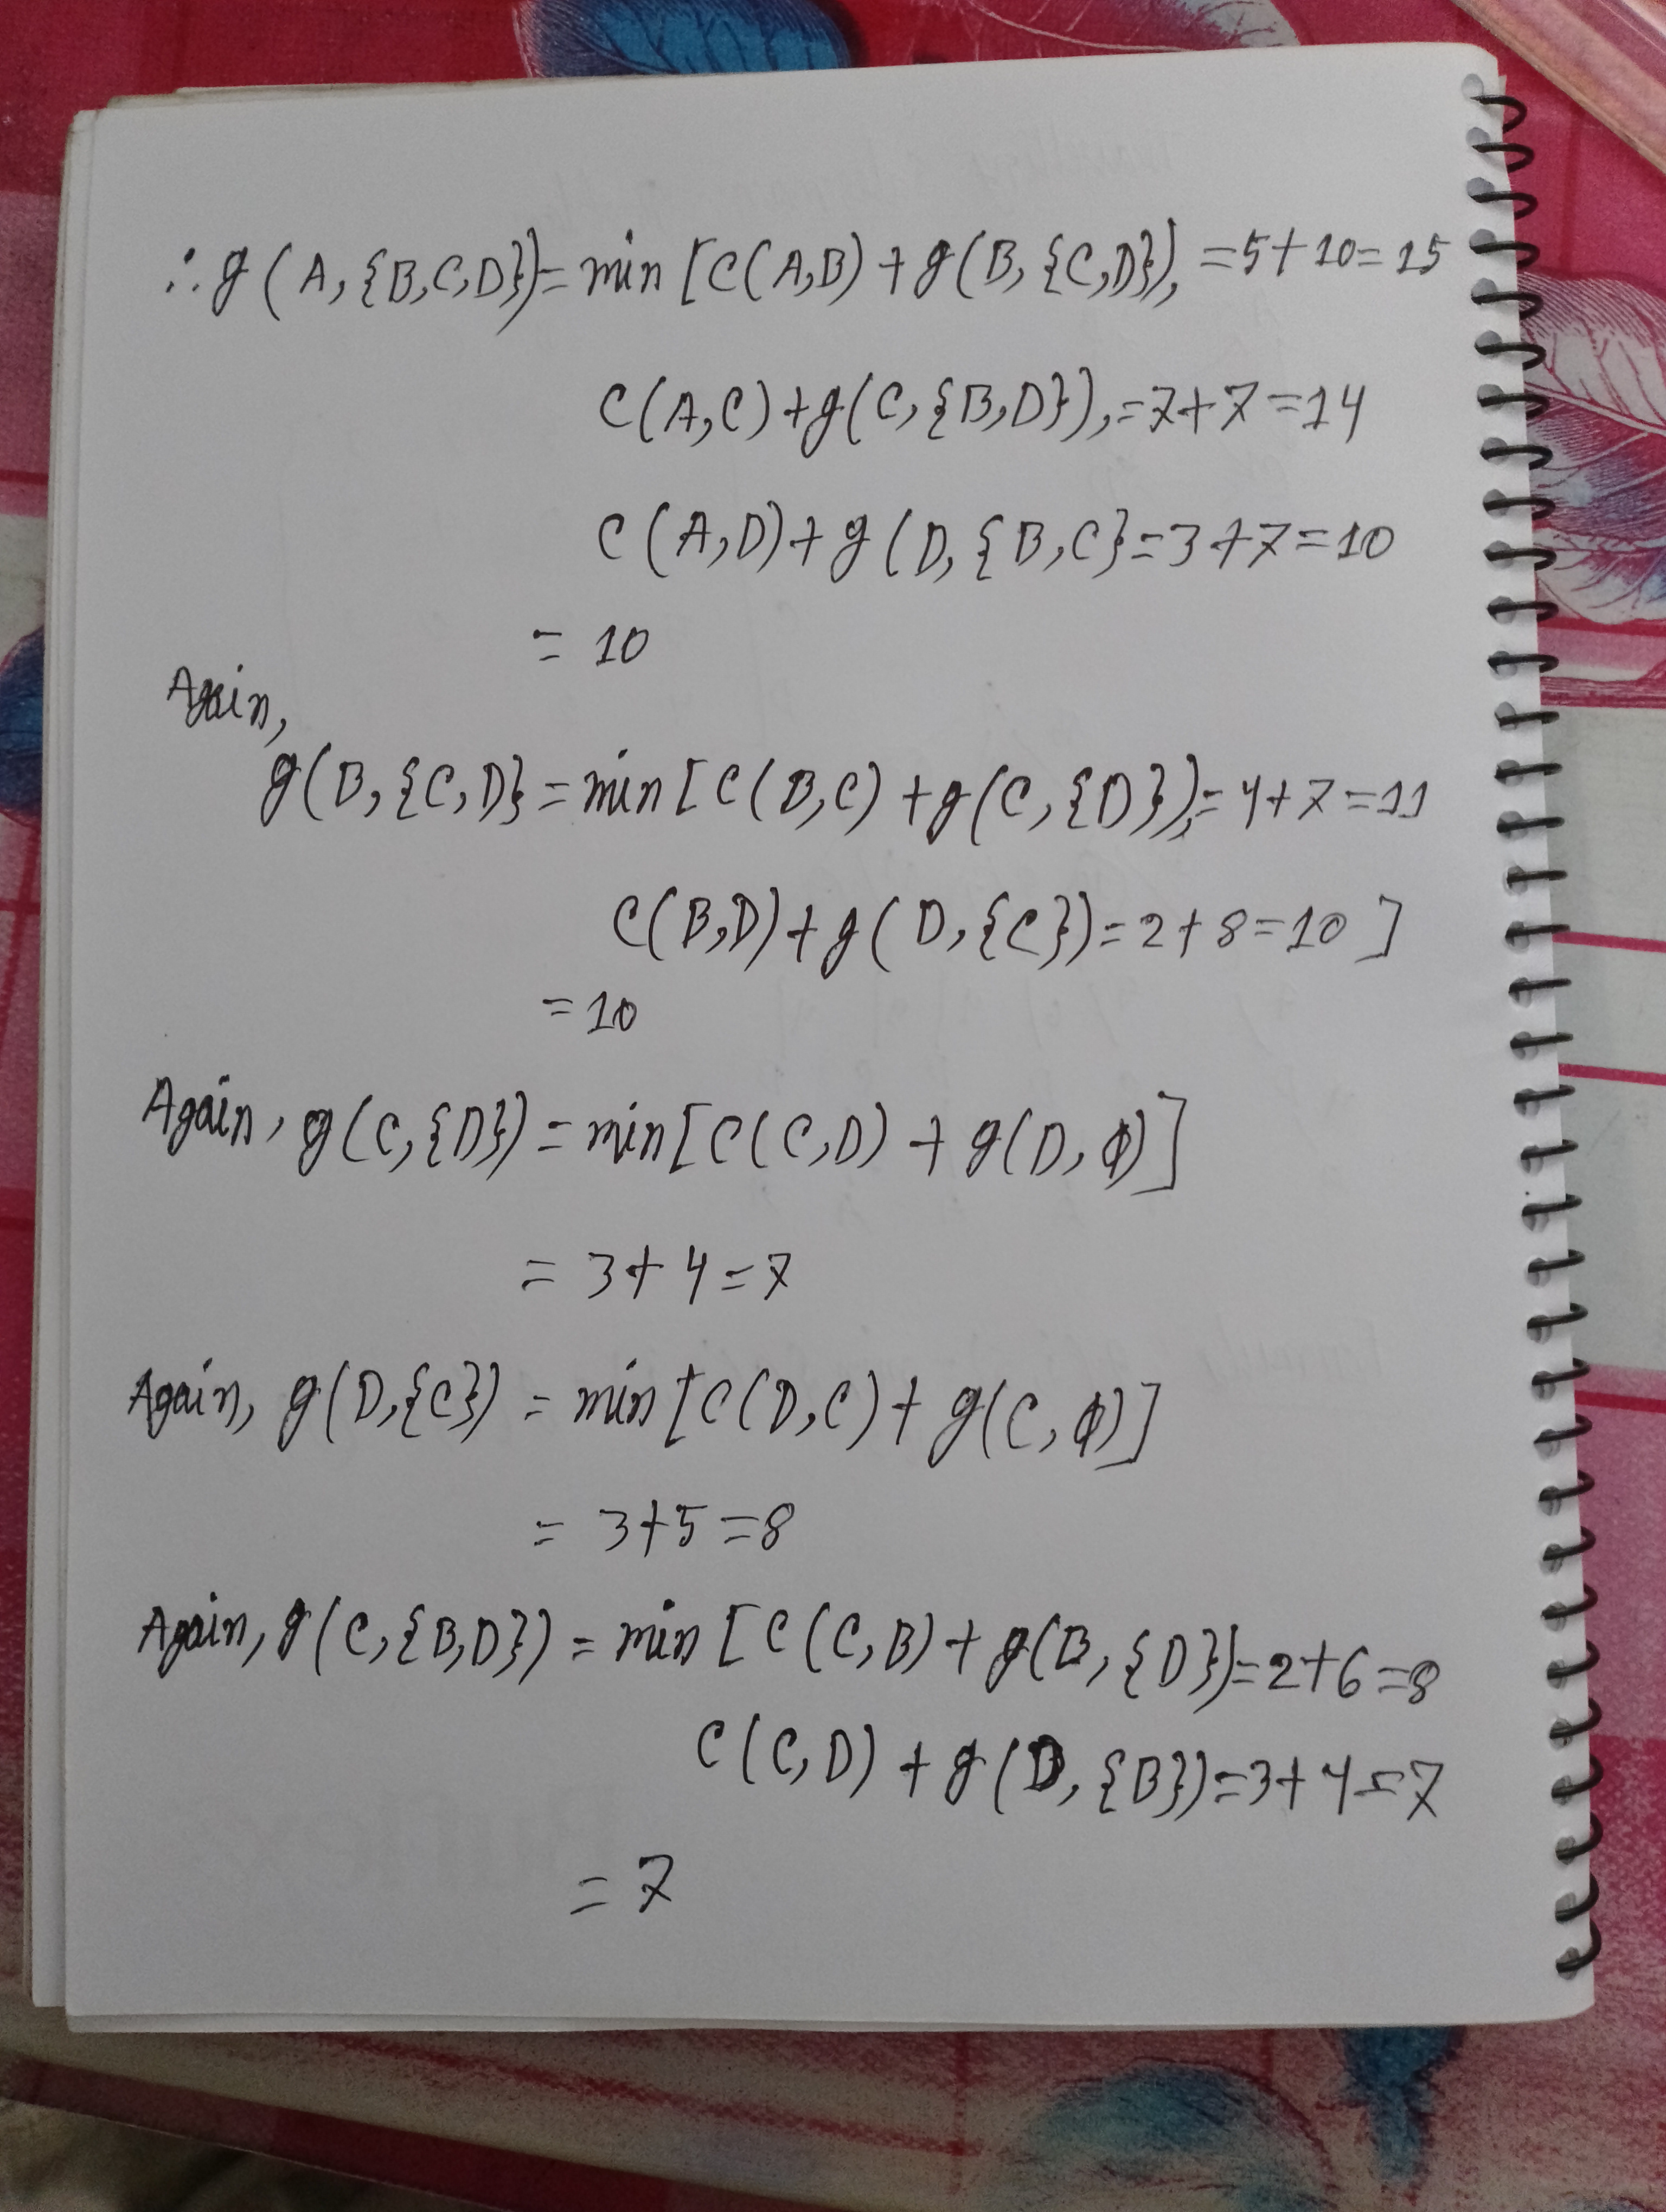 ∴ g(A,{B,C,D})= min [C(A,B) + g(B,{C,D}), =5+10=15
C(A,C)+g(C,{B,D}),=7+7=14
C(A,D)+g(D,{B,C}=3+7=10
= 10
Again,
g(B,{C,D}=min[C(B,C) +g(C,{D}),=4+7=11
C(B,D)+g(D,{C})=2+8=10]
=10
Again, g(C,{D})=min[C(C,D) + g(D,ϕ)]
= 3+4=7
Again, g(D,{C}) = min[C(D,C)+ g(C,ϕ)]
= 3+5=8
Again, g(C,{B,D}) = min [C(C,B)+g(B,{D})=2+6=8
C(C,D) + g(D,{B})=3+4=7
= 7